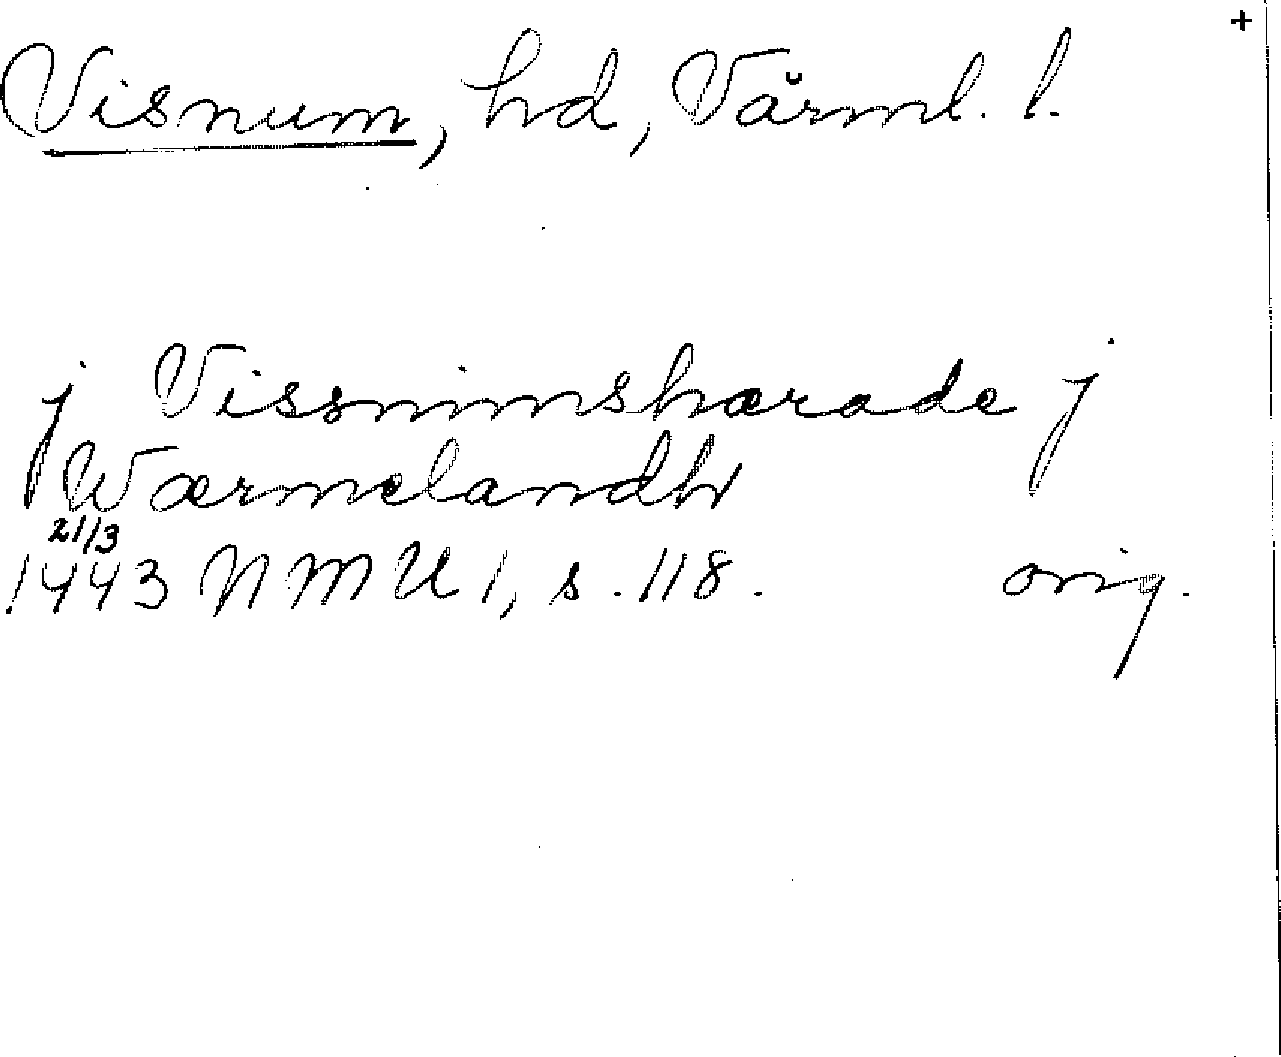 +
Visnum, hd, Värml. l.
j Vissnimshærade j
Wærmelandh
21/3
1443 NMU 1, s. 118. orig.